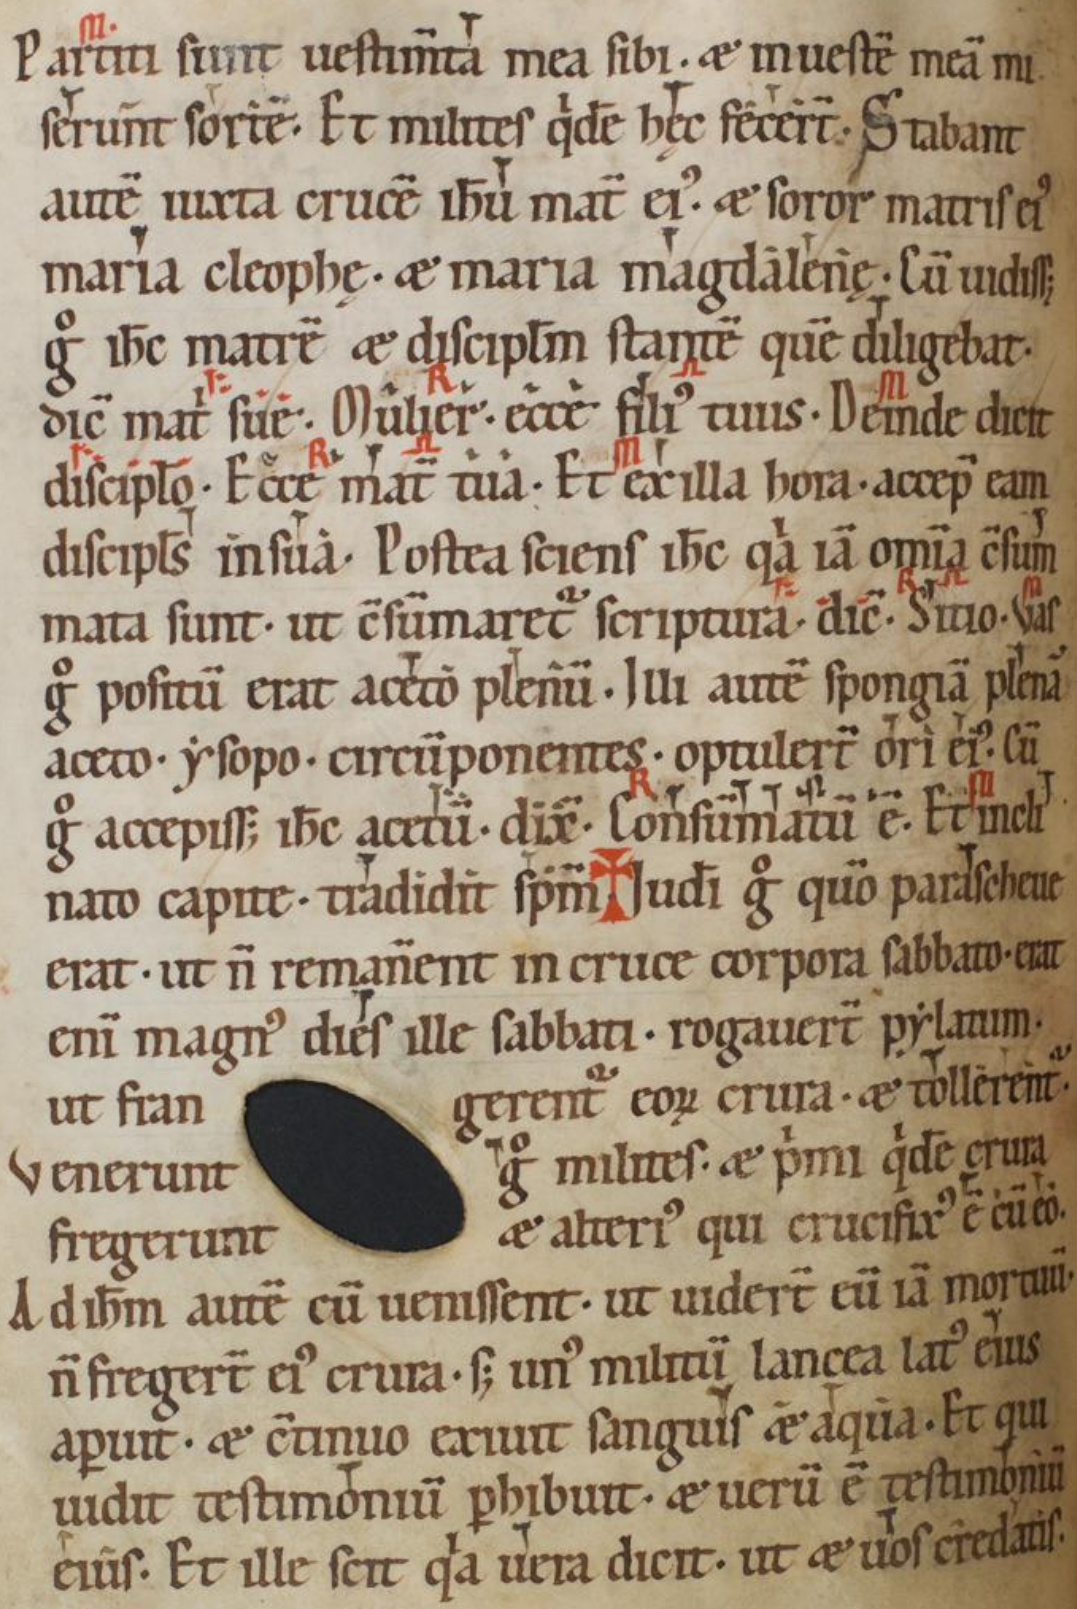 Partiti sunt uestim̅ta mea sibi. & in uestē meā mi
serun̅t sortē. Et milites qͥdē hęc fecer̅t. Stabant
autē iuxta crucē ih̅u mat̅ ei᾽. & soror matris ei᾽
maria cleophę. & maria magdalenę. Cū uidiss;
gͦ ih̅c matrē & discipl̅m stantē quē diligebat.
dic̅ mat̅ suę. Mulier. ecce fili᾽ tuus. Deinde dicit
discipl̅o. Ecce mat̅ tua. Et ex illa hora. accep̅ eam
discipl̅s in suā. Postea sciens ih̅c qͣa iā om̅ia c̅sum
mata sunt. ut c̅sūmaret᷑ scriptura. dic̅. Sitio. Vas
gͦ positū erat aceto plenū. Illi autē spongiā plenā
aceto. ẏsopo. circū̅ponentes. optuler̅t ori ei᾽. Cū
gͦ accepiss; ih̅c acetū. dix̅. Consūmatū ē. Et incli
nato capite. tradidit sp̅m Iud̅i gͦ qu̅o parasceue
erat. ut n̅ reman̅ent in cruce corpora sabbato. erat
eni̅ magn᾽ dies ille sabbati. rogauer̅t pẏlatum.
ut fran gerent᷑ eoꝝ crura. & tollerent᷑.
Venerunt gͦ milites. & pͥmi qͥdē crura
fregerunt & alteri᾽ qui crucifix᾽ ē cū eo.
Ad ih̅m autē cū uenissent. ut uider̅t eū iā mortuū.
n̅ freger̅t ei᾽ crura. s; un᾽ militū lancea lat᾽ eius
aꝑuit. & c̅tinuo exiuit sanguis & aqua. Et qui
uidit testimoniū ꝑhibuit. & uerū ē testimoniū
eius. Et ille scit qͣa uera dicit. ut & uos credatis.